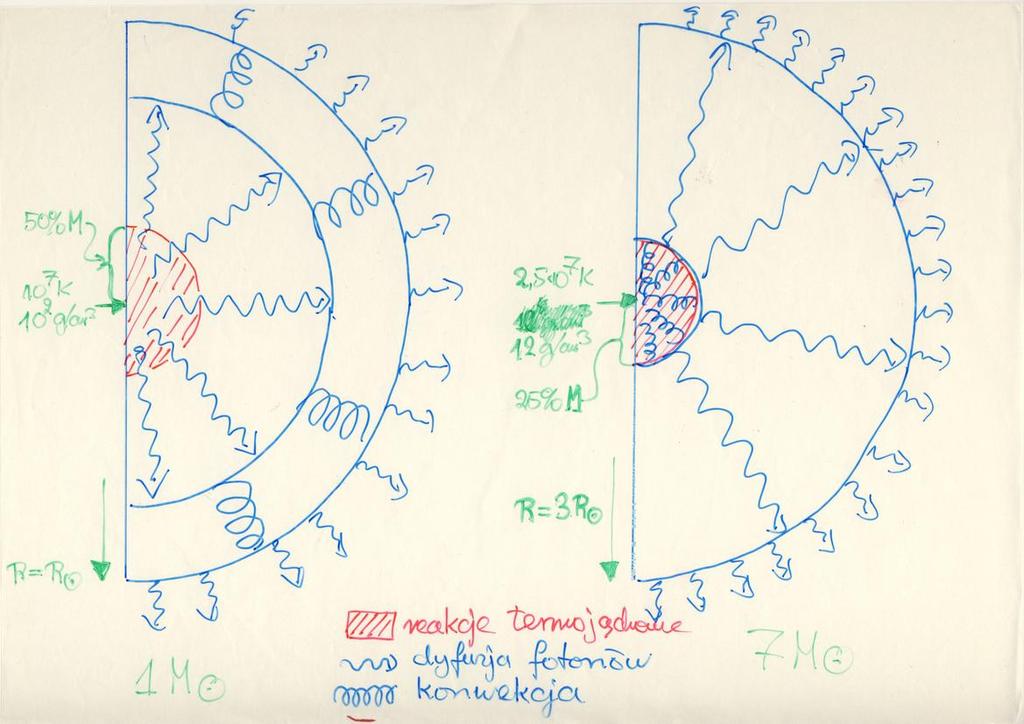 50%M
10⁷K
10²g/cm³
R=R☉
1M☉
2,5·10⁷K
12g/cm³
25%M
R=3R☉
7M☉
reakcje termojądrowe
dyfuzja fotonów
konwekcja